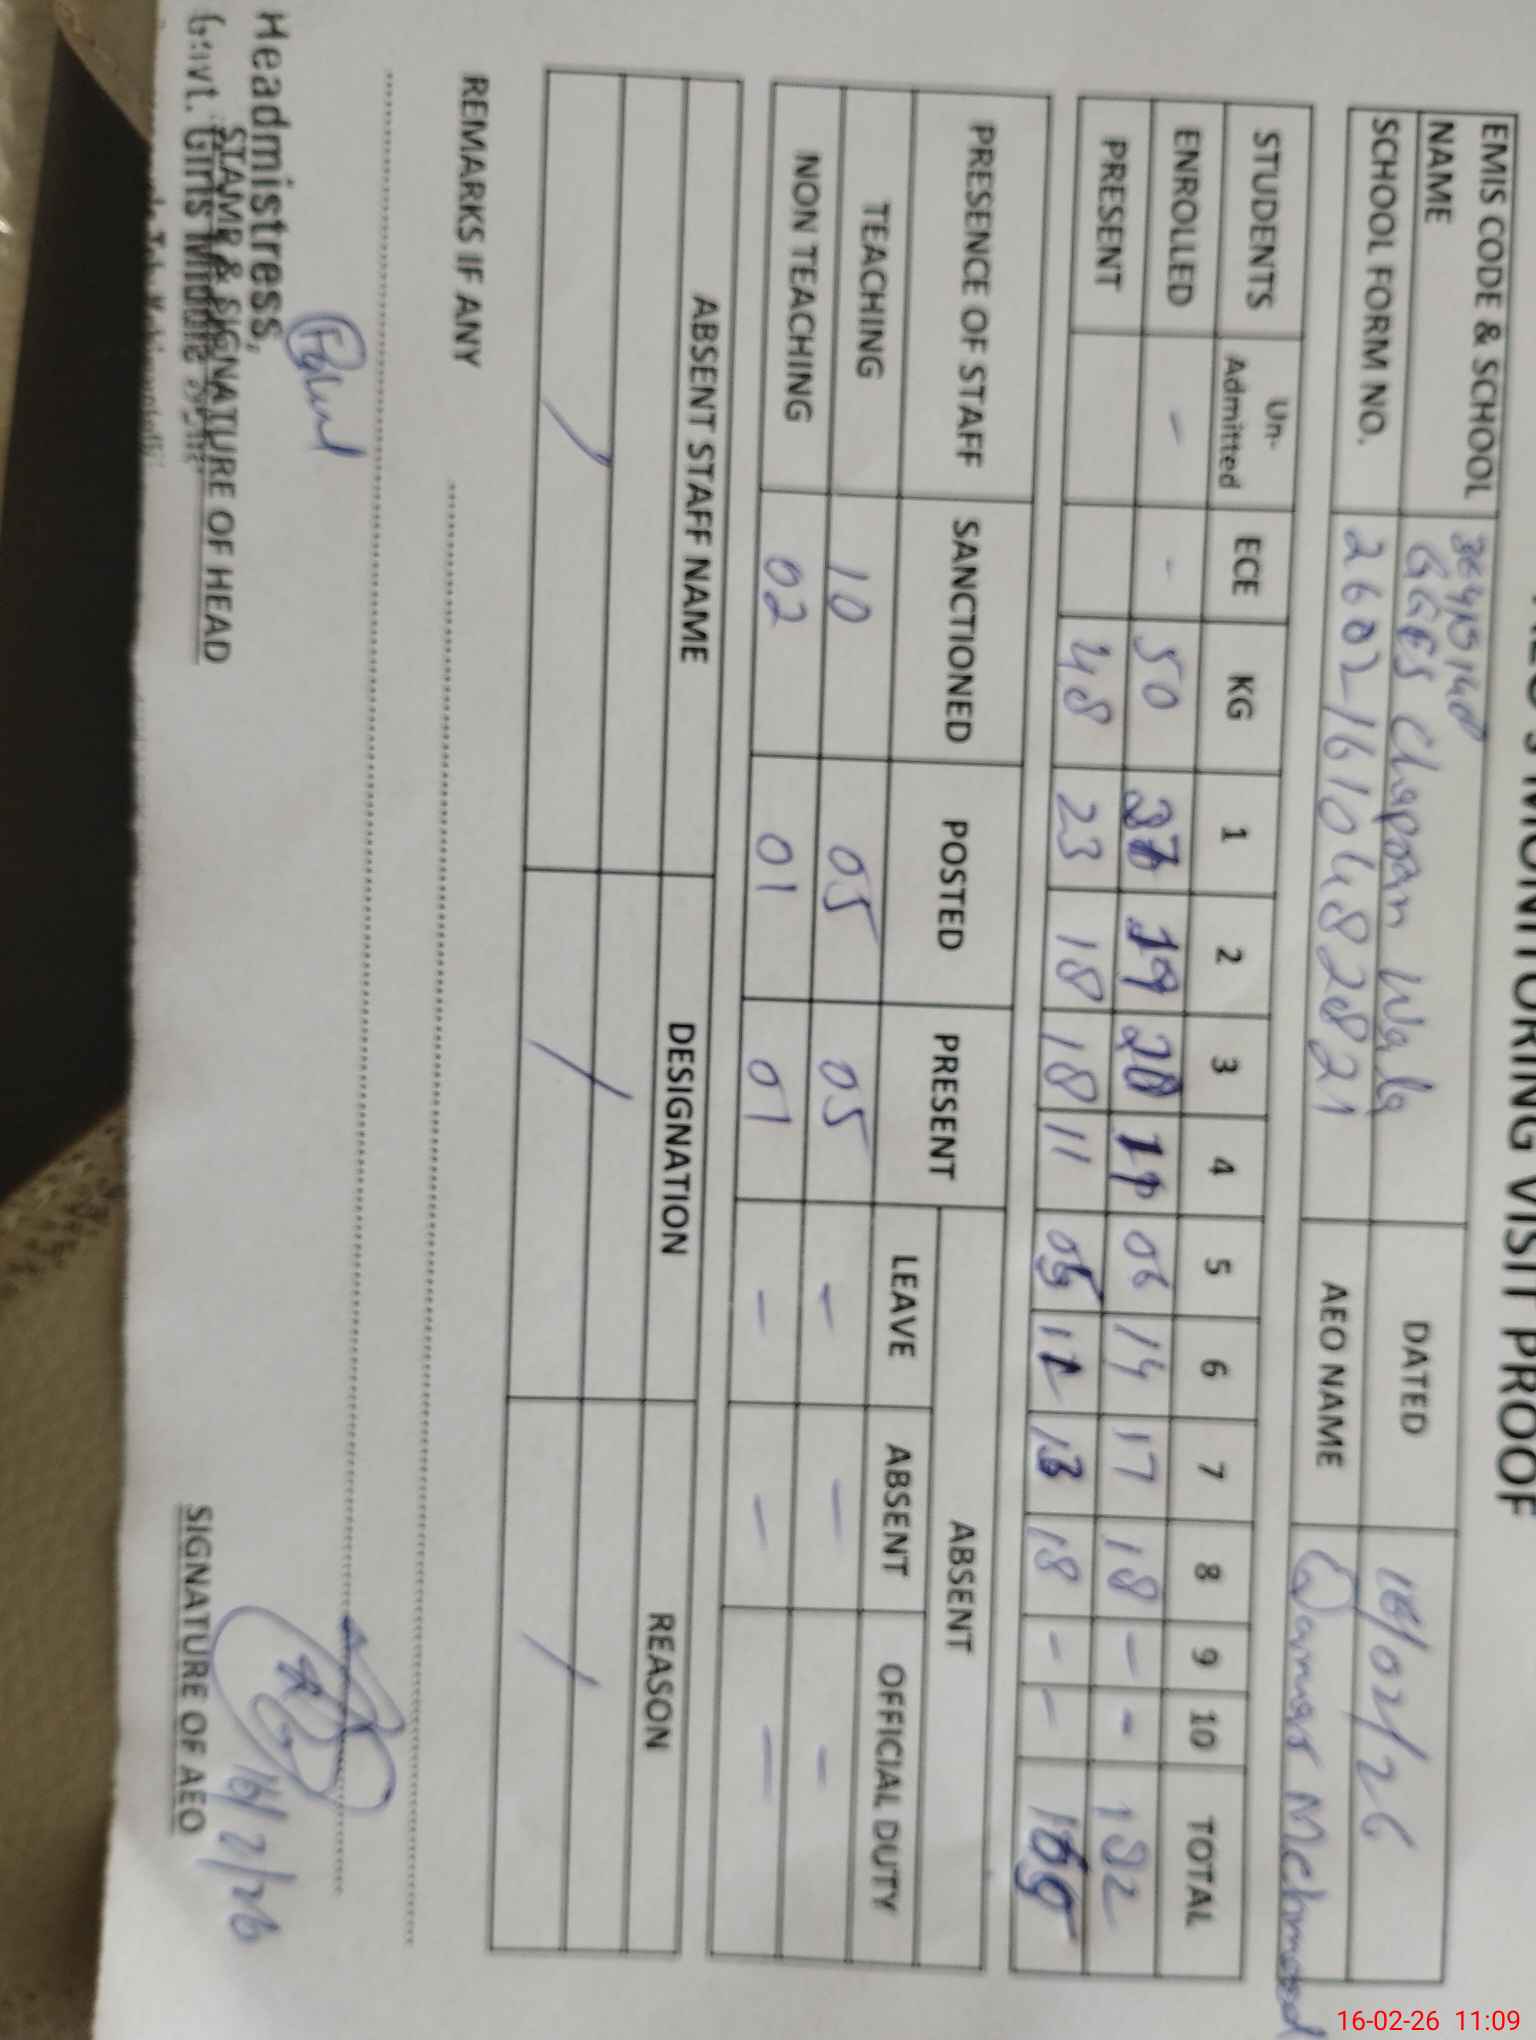 MONITORING VISIT PROOF
EMIS CODE & SCHOOL NAME GGES Chapran Wala DATED 16/02/26
SCHOOL FORM NO. 2602-1610482821 AEO NAME Qamar Mehmood
STUDENTS Un-Admitted ECE KG 1 2 3 4 5 6 7 8 9 10 TOTAL
ENROLLED - - 50 19 20 11 06 14 17 18 - - 192
PRESENT 48 23 18 18 11 05 12 13 18 - -
PRESENCE OF STAFF SANCTIONED POSTED PRESENT ABSENT
LEAVE ABSENT OFFICIAL DUTY
TEACHING 10 05 05 - - -
NON TEACHING 02 01 01 - - -
ABSENT STAFF NAME DESIGNATION REASON
/ / /
REMARKS IF ANY
Headmistress,
STAMP & SIGNATURE OF HEAD
Govt. Girls Middle
16/2/26
SIGNATURE OF AEO
16-02-26 11:09